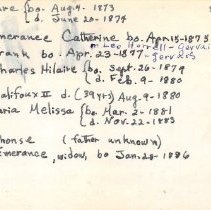 bo. Aug. 4. 1873
d. June 20. 1874
merance Catherine bo. Apr. 15-1875
m Leo Horrell - Gervai
rank bo. Apr. 23-1877
Gervais
harles Hilaire bo. Sept. 26-1879
d. Feb. 9 - 1880
alifoux II d. (39 yrs) Aug. 9-1880
aria Melissa bo. Mar. 2-1881
d. Nov. 22-1883
honse (father unknown)
merance, widow, bo Jan. 28-1886